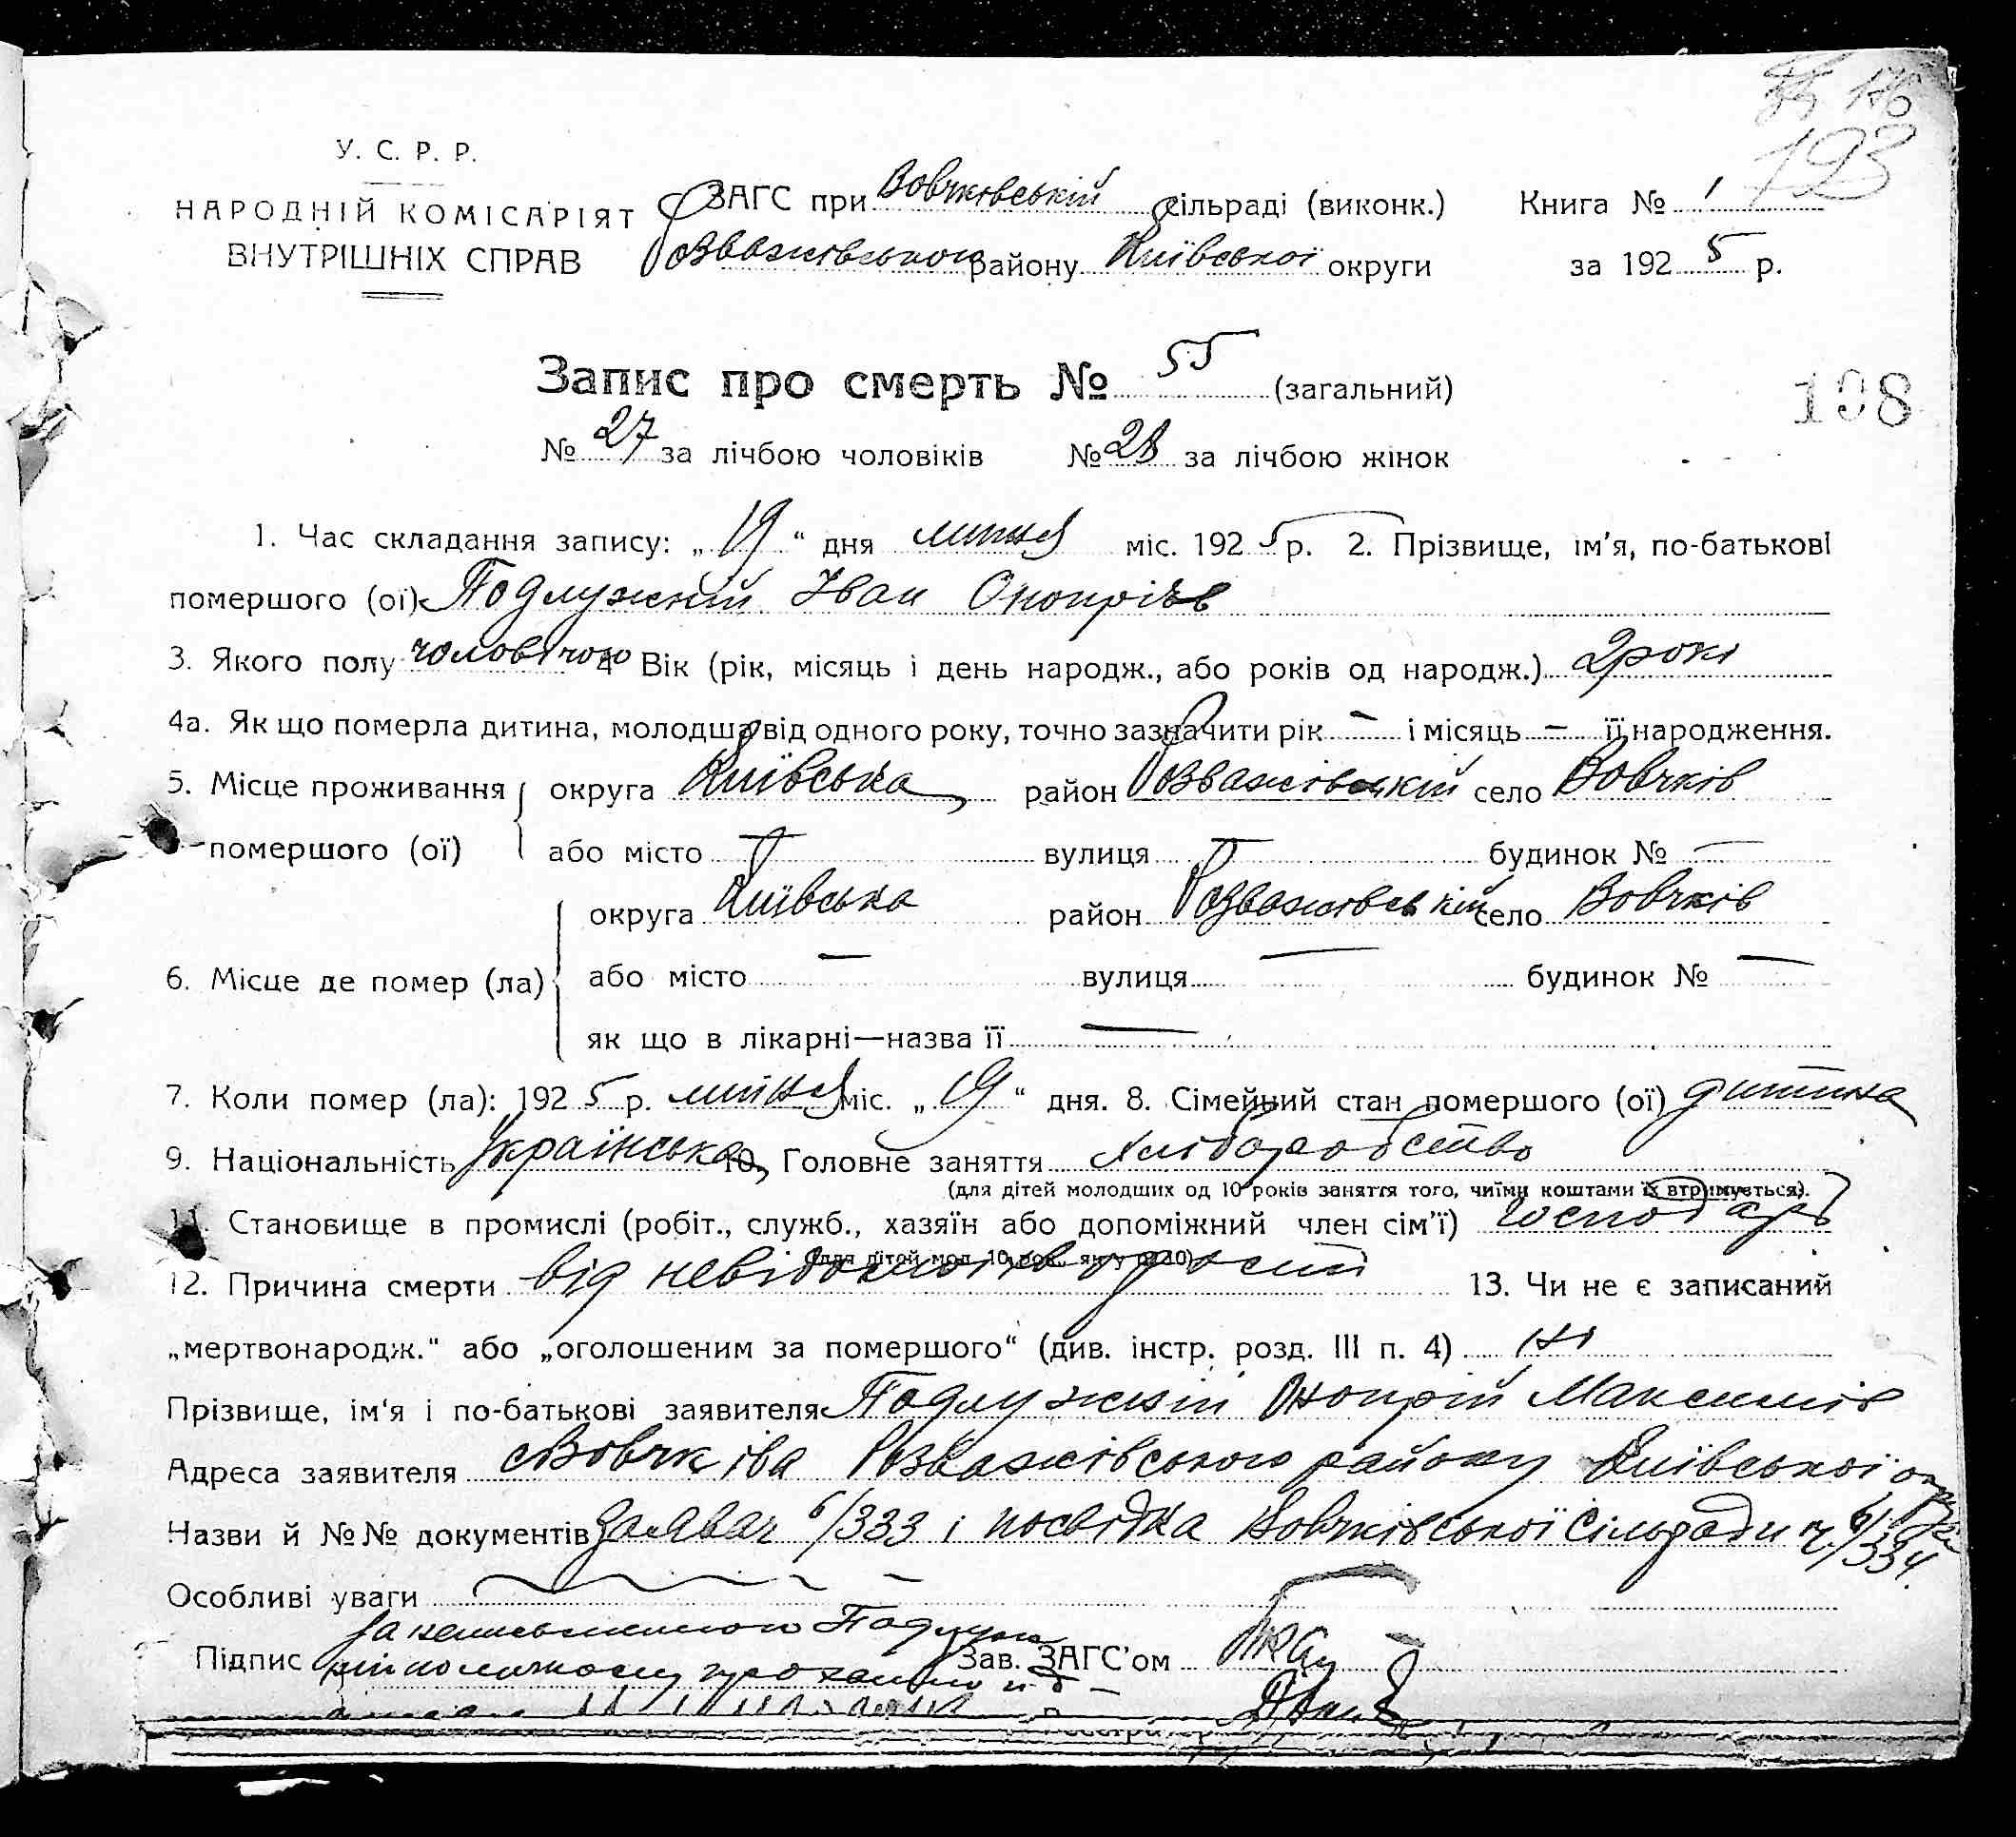 193
У. С. Р. Р.
НАРОДНІЙ КОМІСАРІЯТ
ВНУТРІШНІХ СПРАВ
ЗАГС при Вовчківській сільраді (виконк.) Книга № 1
Розважівського району Київської округи за 1925 р.
Запис про смерть № 55 (загальний)
198
№ 27 за лічбою чоловіків № 28 за лічбою жінок
1. Час складання запису: „19“ дня липня міс. 1925 р. 2. Прізвище, ім'я, по-батькові
помершого (ої) Подлужний Іван Онопріїв
3. Якого полу чоловічого 4 Вік (рік, місяць і день народж., або років од народж.) 2 рокі
4а. Як що померла дитина, молодша від одного року, точно зазначити рік — і місяць — її народження.
5. Місце проживання округа Київська, район Розважівський село Вовчків
помершого (ої) або місто — вулиця — будинок № —
округа Київська район Розважівський село Вовчків
6. Місце де помер (ла) або місто — вулиця — будинок № —
як що в лікарні—назва її —
7. Коли помер (ла): 1925 р. липня міс. „19“ дня. 8. Сімейний стан помершого (ої) дитина
9. Національність Українська, 10. Головне заняття хліборобство
(для дітей молодших од 10 років заняття того, чиїми коштами їх втримується).
11. Становище в промислі (робіт., служб., хазяїн або допоміжний член сім'ї) господарь
(для дітей мол. 10 рок. як у п. 10)
12. Причина смерти від невідомої 13. Чи не є записаний
„мертвонародж.“ або „оголошеним за помершого“ (див. інстр. розд. III п. 4) ні
Прізвище, ім'я і по-батькові заявителя Подлужний Онопрій Максимів
Адреса заявителя с Вовчківа Розважівського району Київської округи
Назви й №№ документів 6/333 і посвідка Вовчківської сільради ч. 6/334.
Особливі уваги
за неписьменного Подлуж
Підпис ного по личному проханню Зав. ЗАГС'ом